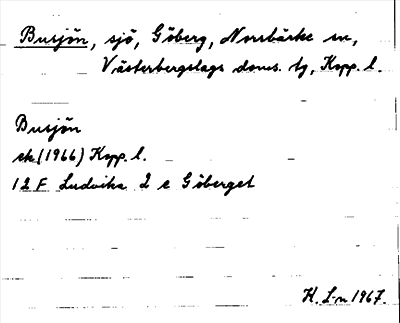 Busjön, sjö, Göberg, Norrbärke sn,
Västerbergslags doms. tg, Kopp. l.
Busjön
ek (1966) Kopp. l.
12 F Ludvika 2 c Göberget
H. L-n 1967.